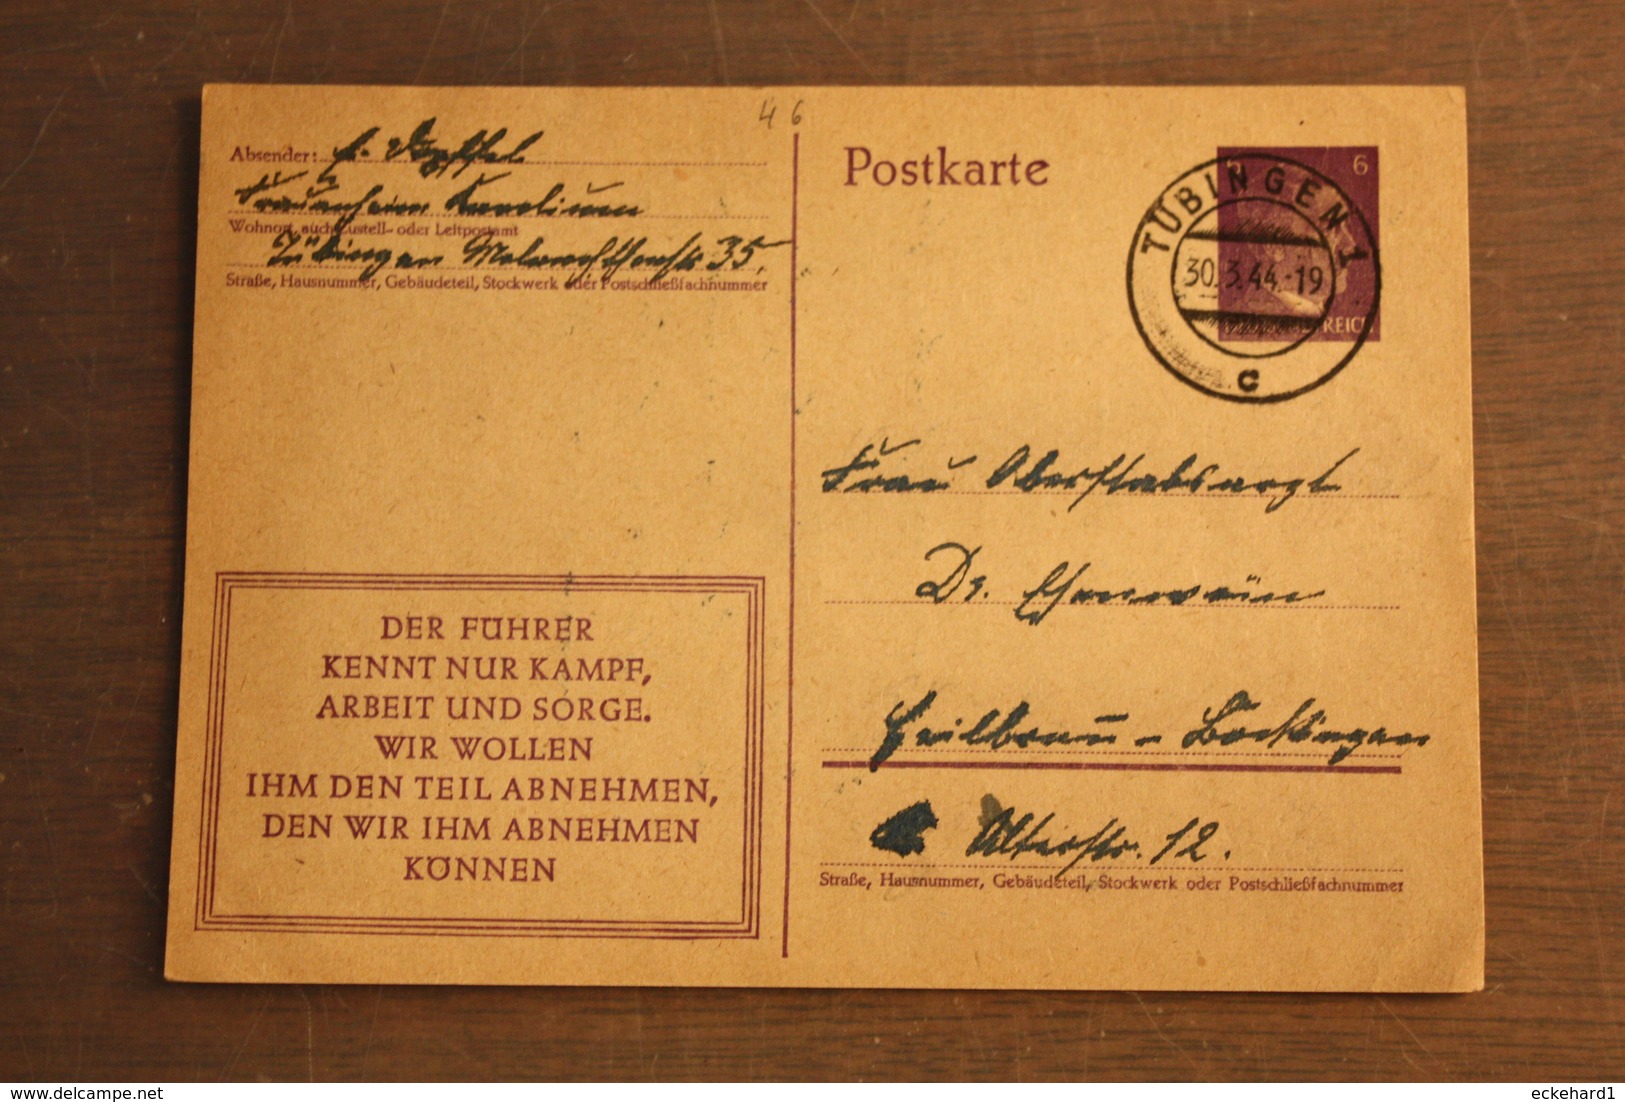 46
Absender:
Frauenheim Karolinum
Wohnort, auch Zustell- oder Leitpostamt
Tübingen Melanchthonstr 35,
Straße, Hausnummer, Gebäudeteil, Stockwerk oder Postschließfachnummer
Postkarte
6
6
REICH
TÜBINGEN 1
30.3.44.-19
c
Frau Oberstabsarzt
Dr.
Heilbronn - Böckingen
Alterstr. 12.
Straße, Hausnummer, Gebäudeteil, Stockwerk oder Postschließfachnummer
DER FÜHRER
KENNT NUR KAMPF,
ARBEIT UND SORGE.
WIR WOLLEN
IHM DEN TEIL ABNEHMEN,
DEN WIR IHM ABNEHMEN
KÖNNEN
www.delcampe.net
eckehard1